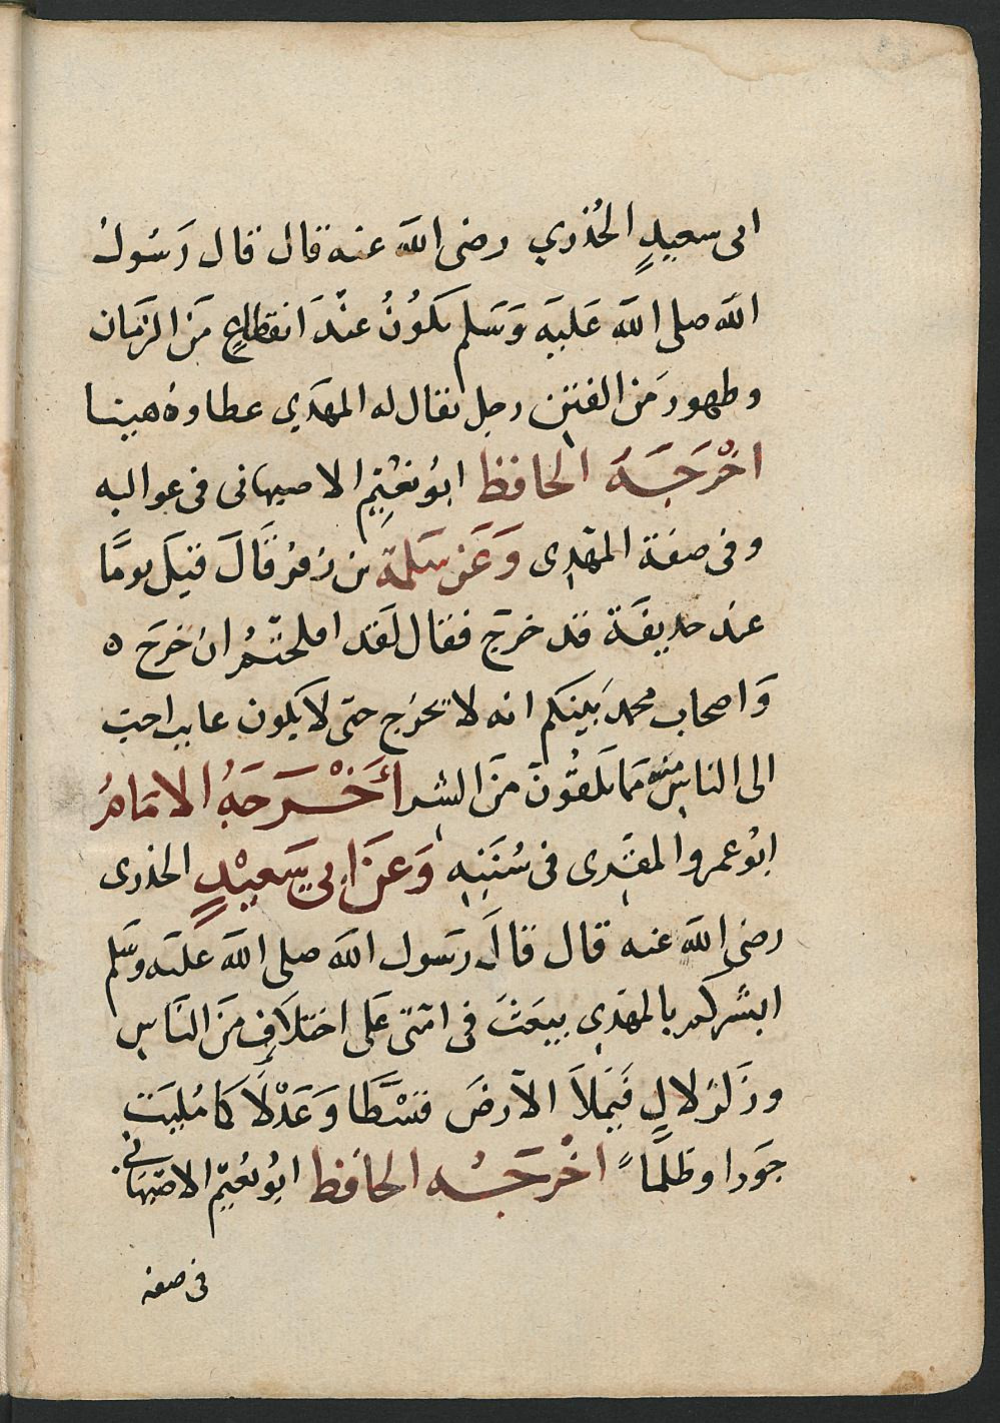 ابى سعيدٍ الخُدري رضى الله عنه قال قال رَسُول
الله صلى الله عَليَه وَسَلم يكوُنُ عنْدَ انقطاعٍ مَن الزَمَان
وظهور مَن الفتن رجل يقال له المهَدي عطاوهُ هينا
اخْرَجَهَ الحافظ ابوُ نعْيِم الاصبهانى فى عواليه
وفى صفة المهَدِى وَعَن سَلمة بن زفرُ قَالَ قيَل يومًا
عند حذيفَة قد خرجَ فقال لَقد افلحتمُ ان خَرجَ ه
وَاصحاب محمد بَينكم انه لا يخرَج حتى لا يكون غايب احب
الى الناس منه مَما يَلقوُن مَن الشر أخْرَجَهُ الامَامُ
ابوُ عمرو المقرى فى سُنَنِه وَعَن ابي سَعِيْدٍ الخذرى
رضى الله عنه قال قالَ رسَول الله صلى الله عليه وَسَلم
ابشركم بالمهَدِي يبعَثَ فى امتى عَلى اختلاَفِ مَن النَاسِ
وزَلزَلالِ فَيَملاَ الاَرضَ قسْطًا وَعَدْلًا كَما مُليَت
جَورا وظلمًا اخْرجَهُ الحافظ ابوُ نعُيِم الاصَبِهَانى
فى صفة